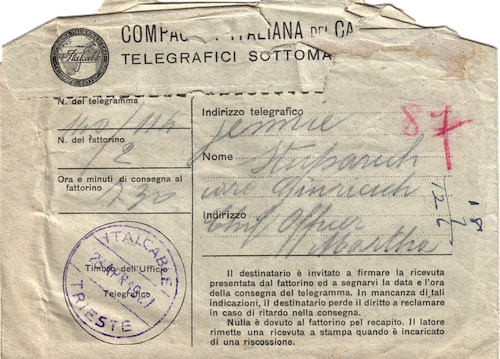 Italcable
COMPAGNIA ITALIANA DEI CA
TELEGRAFICI SOTTOMA
N. del telegramma
N. del fattorino
12
Ora e minuti di consegna al
fattorino
Indirizzo telegrafico
Jennie
87
Nome
Stuparich
care
Indirizzo
Chief Officer
Martha
ITALCABLE
Timbro dell'Ufficio
Telegrafico
TRIESTE
Il destinatario è invitato a firmare la ricevuta
presentata dal fattorino ed a segnarvi la data e l'ora
della consegna del telegramma. In mancanza di tali
indicazioni, il destinatario perde il diritto a reclamare
in caso di ritardo nella consegna.
Nulla è dovuto al fattorino pel recapito. Il latore
rimette una ricevuta a stampa quando è incaricato
di una riscossione.